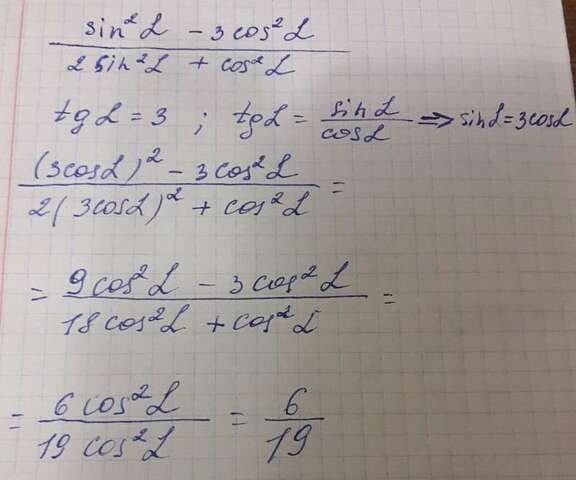 sin²α - 3cos²α
2 sin²α + cos²α
tg α = 3 ; tg α = sin α / cos α ⇒ sin α = 3cos α
(3cosα)² - 3cos²α
2(3cosα)² + cos²α =
= 9cos²α - 3cos²α
18cos²α + cos²α =
= 6 cos²α / 19 cos²α = 6 / 19